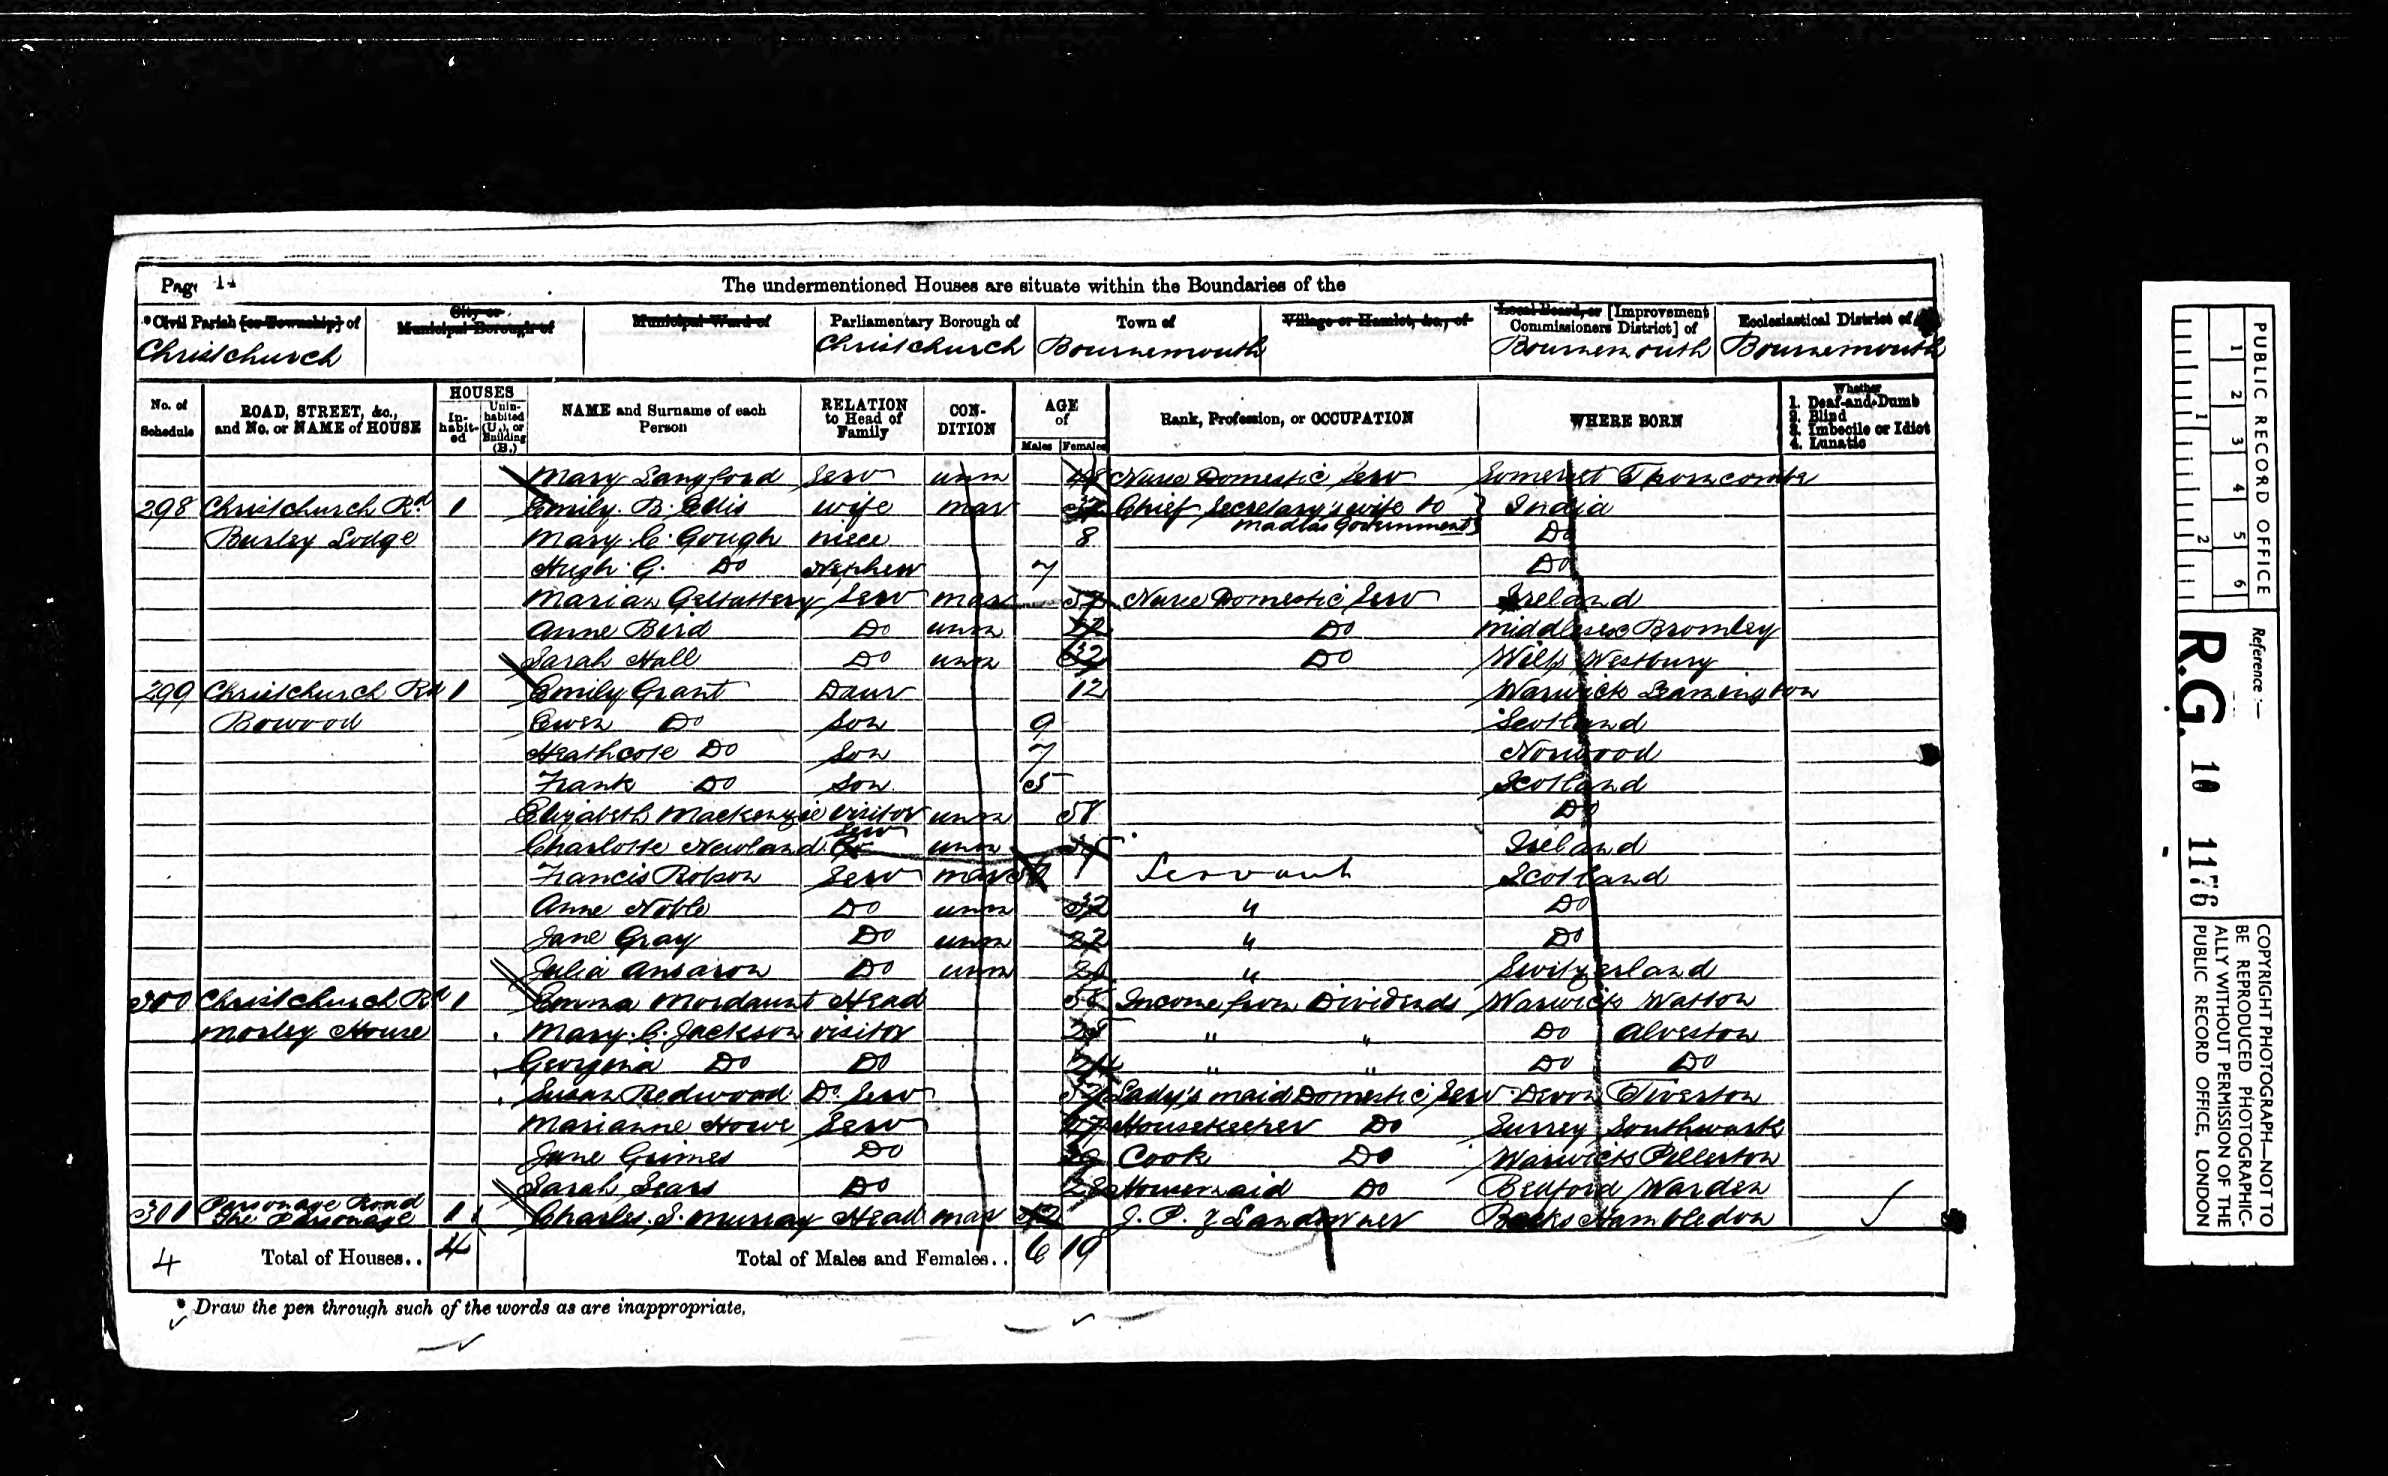 Page 14 The undermentioned Houses are situate within the Boundaries of the
*Civil Parish [or Township] of
City or Municipal Borough of
Municipal Ward of
Parliamentary Borough of
Town of
Village or Hamlet, &c., of
Local Board, or [Improvement Commissioners District] of
Ecclesiastical District of
Christchurch Christchurch Bournemouth Bournemouth Bournemouth
No. of Schedule
ROAD, STREET, &c., and No. or NAME of HOUSE
HOUSES
In-habit-ed
Unin-habited (U.), or Building (B.)
NAME and Surname of each Person
RELATION to Head of Family
CON-DITION
AGE of
Males Females
Rank, Profession, or OCCUPATION
WHERE BORN
Whether
1. Deaf-and-Dumb
2. Blind
3. Imbecile or Idiot
4. Lunatic
Mary Langford Serv unm 48 Nurse Domestic Serv Somerset Thorncombe
298 Christchurch Rd 1 Emily B. Ellis wife mar Chief Secretary's wife to India
Burley Lodge Mary C. Gough niece 8 Madras Government Do
Hugh G. Do Nephew 7 Do
Marian Serv mar Nurse Domestic Serv Ireland
Anne Bird Do unm 22 Do Middlesex Bromley
Sarah Hall Do unm 32 Do Wilts Westbury
299 Christchurch Rd 1 Emily Grant Daur 12 Warwick Leamington
Bowood Ewen Do Son 9 Scotland
Heathcote Do Son 7 Norwood
Frank Do Son 5 Scotland
Elizabeth Mackenzie visitor unm 58 Do
Charlotte Newland Serv unm Ireland
Francis Robson Serv mar Servant Scotland
Anne Noble Do unm 32 " Do
Jane Gray Do unm 22 " Do
Julia Do unm " Switzerland
300 Christchurch Rd 1 Emma Mordaunt Head Income from Dividends Warwick
Morley House Mary C. Jackson visitor " " Do Alveston
Georgina Do Do " " Do Do
Susan Redwood Do Serv Lady's maid Domestic Serv Devon Tiverton
Marianne Howe Serv 67 Housekeeper Do Surrey Southwark
Jane Grimes Do Cook Do Warwick Pillerton
Sarah Sears Do 28 Housemaid Do Bedford Warden
301 Parsonage Road
The Parsonage 1 Charles S. Murray Head mar J. P. & Landowner Bucks Hambledon
4 Total of Houses.. 4 Total of Males and Females.. 6 19
* Draw the pen through such of the words as are inappropriate.
PUBLIC RECORD OFFICE
1 2 3 4 5 6
1 2
Reference :—
R.G. 10 1176
COPYRIGHT PHOTOGRAPH—NOT TO
BE REPRODUCED PHOTOGRAPHIC-
ALLY WITHOUT PERMISSION OF THE
PUBLIC RECORD OFFICE, LONDON